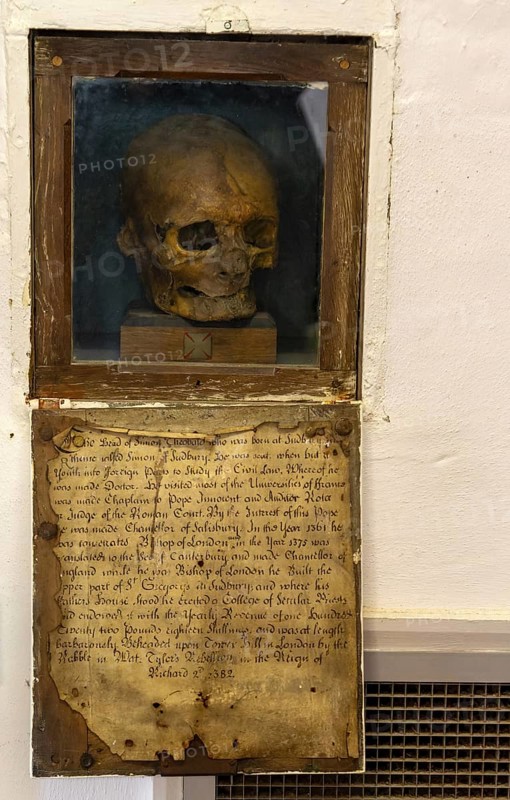 The Head of Simon Theobald who was born at Sudbury
thence called Simon of Sudbury. He was sent, when but a
Youth into foreign Parts to Study the Civil Law, Where of he
was made Doctor. He visited most of the Universities of France
was made Chaplain to Pope Innocent and Auditor Rota
or Judge of the Roman Court. By the Interest of this Pope
he was made Chancellor of Salisbury. In the Year 1361 he
was consecrated Bishop of London in the Year 1375 was
translated to the See of Canterbury and made Chancellor of
England while he was Bishop of London he Built the
upper part of St Gregory's in Sudbury, and where his
Fathers House stood he erected a College of Secular Priests
and endowed it with the Yearly Revenue of one Hundred
Twenty two Pounds eighteen Shillings and was at length
barbarously Beheaded upon Tower Hill in London by the
Rabble in Wat. Tyler's Rebellion in the Reign of
Richard 2d 1382.
PHOTO12
PHOTO12
PHOTO12
PHOTO12